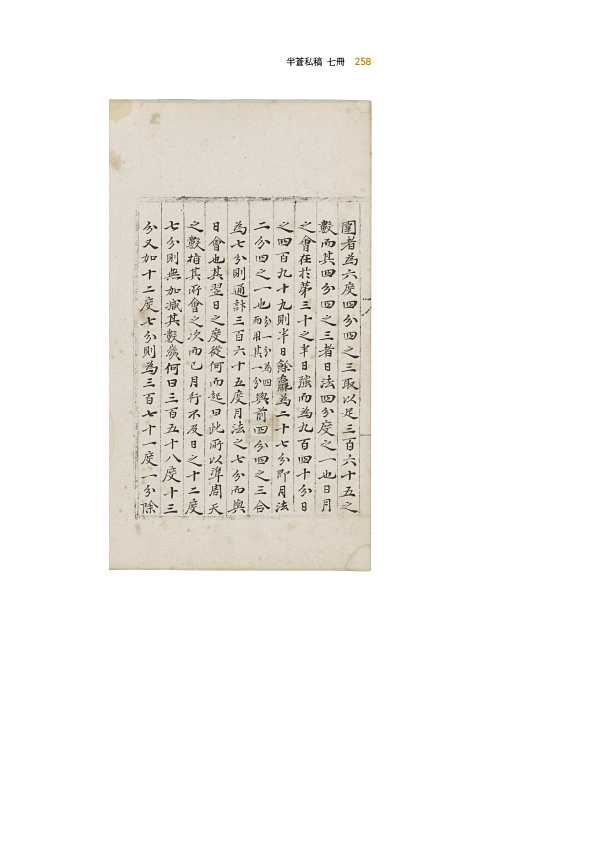 半蒼私稿 七冊 258
圍者為六度四分四之三取以足三百六十五之
數而其四分四之三者日法四分度之一也日月
之會在於第三十之半日強而為九百四十分日
之四百九十九則半日餘為二十七分即月法
二分四之一也分一分為四而用其一分與前四分四之三合
為七分則通計三百六十五度月法之七分而與
日會也其翌日之度從何而起曰此所以準周天
之數指其所會之次而已月行不及日之十二度
七分則無加減其數矣何曰三百五十八度十三
分又加十二度七分則為三百七十一度一分除